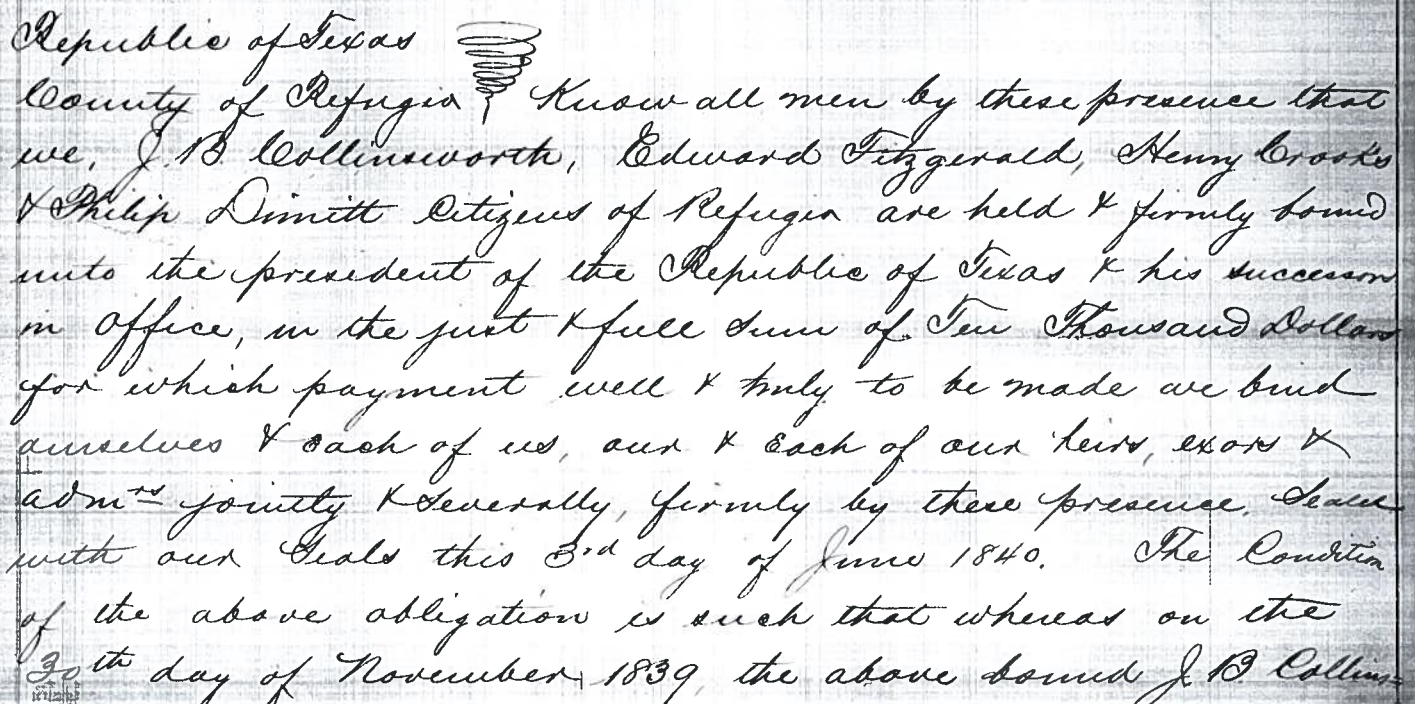 Republic of Texas
County of Refugio Know all men by these presence that
we, J. B Collinsworth, Edward Fitzgerald, Henry Crooks
& Philip Dimitt Citizens of Refugio are held & firmly bound
unto the president of the Republic of Texas & his successors
in office, in the just & full sum of Ten Thousand Dollars
for which payment well & truly to be made we bind
ourselves & each of us, our & Each of our heirs, exors & 
admrs jointly & Severally, firmly by these presence. Sealed
with our Seals this 3rd day of June 1840. The Condition
of the above obligation is such that whereas on the
30th day of November, 1839, the above bound J. B Collins=